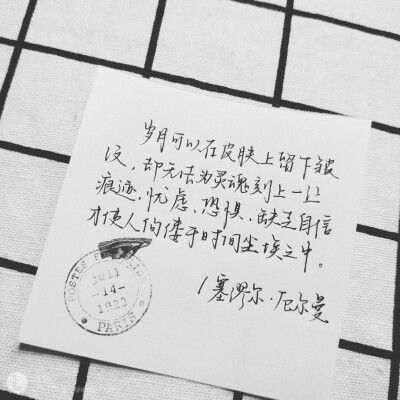 岁月可以在皮肤上留下皱
纹,却无法为灵魂刻上一丝
痕迹.忧虑、恐惧、缺乏自信
才使人佝偻于时间尘埃之中。
/塞缪尔·厄尔曼
POSTES
-14-
1922
PARIS